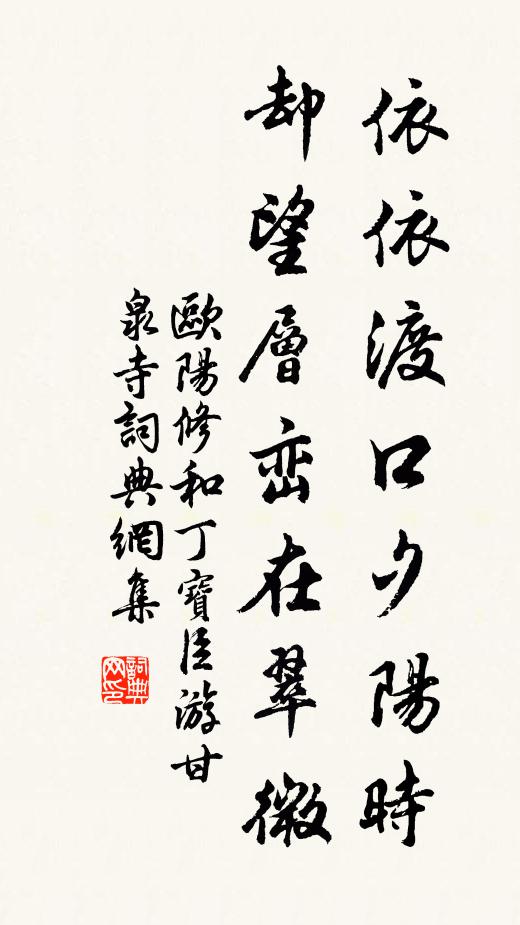 依依渡口夕陽時
却望層峦在翠微
歐陽修和丁寶臣游甘
泉寺詞典網集
詞典網印